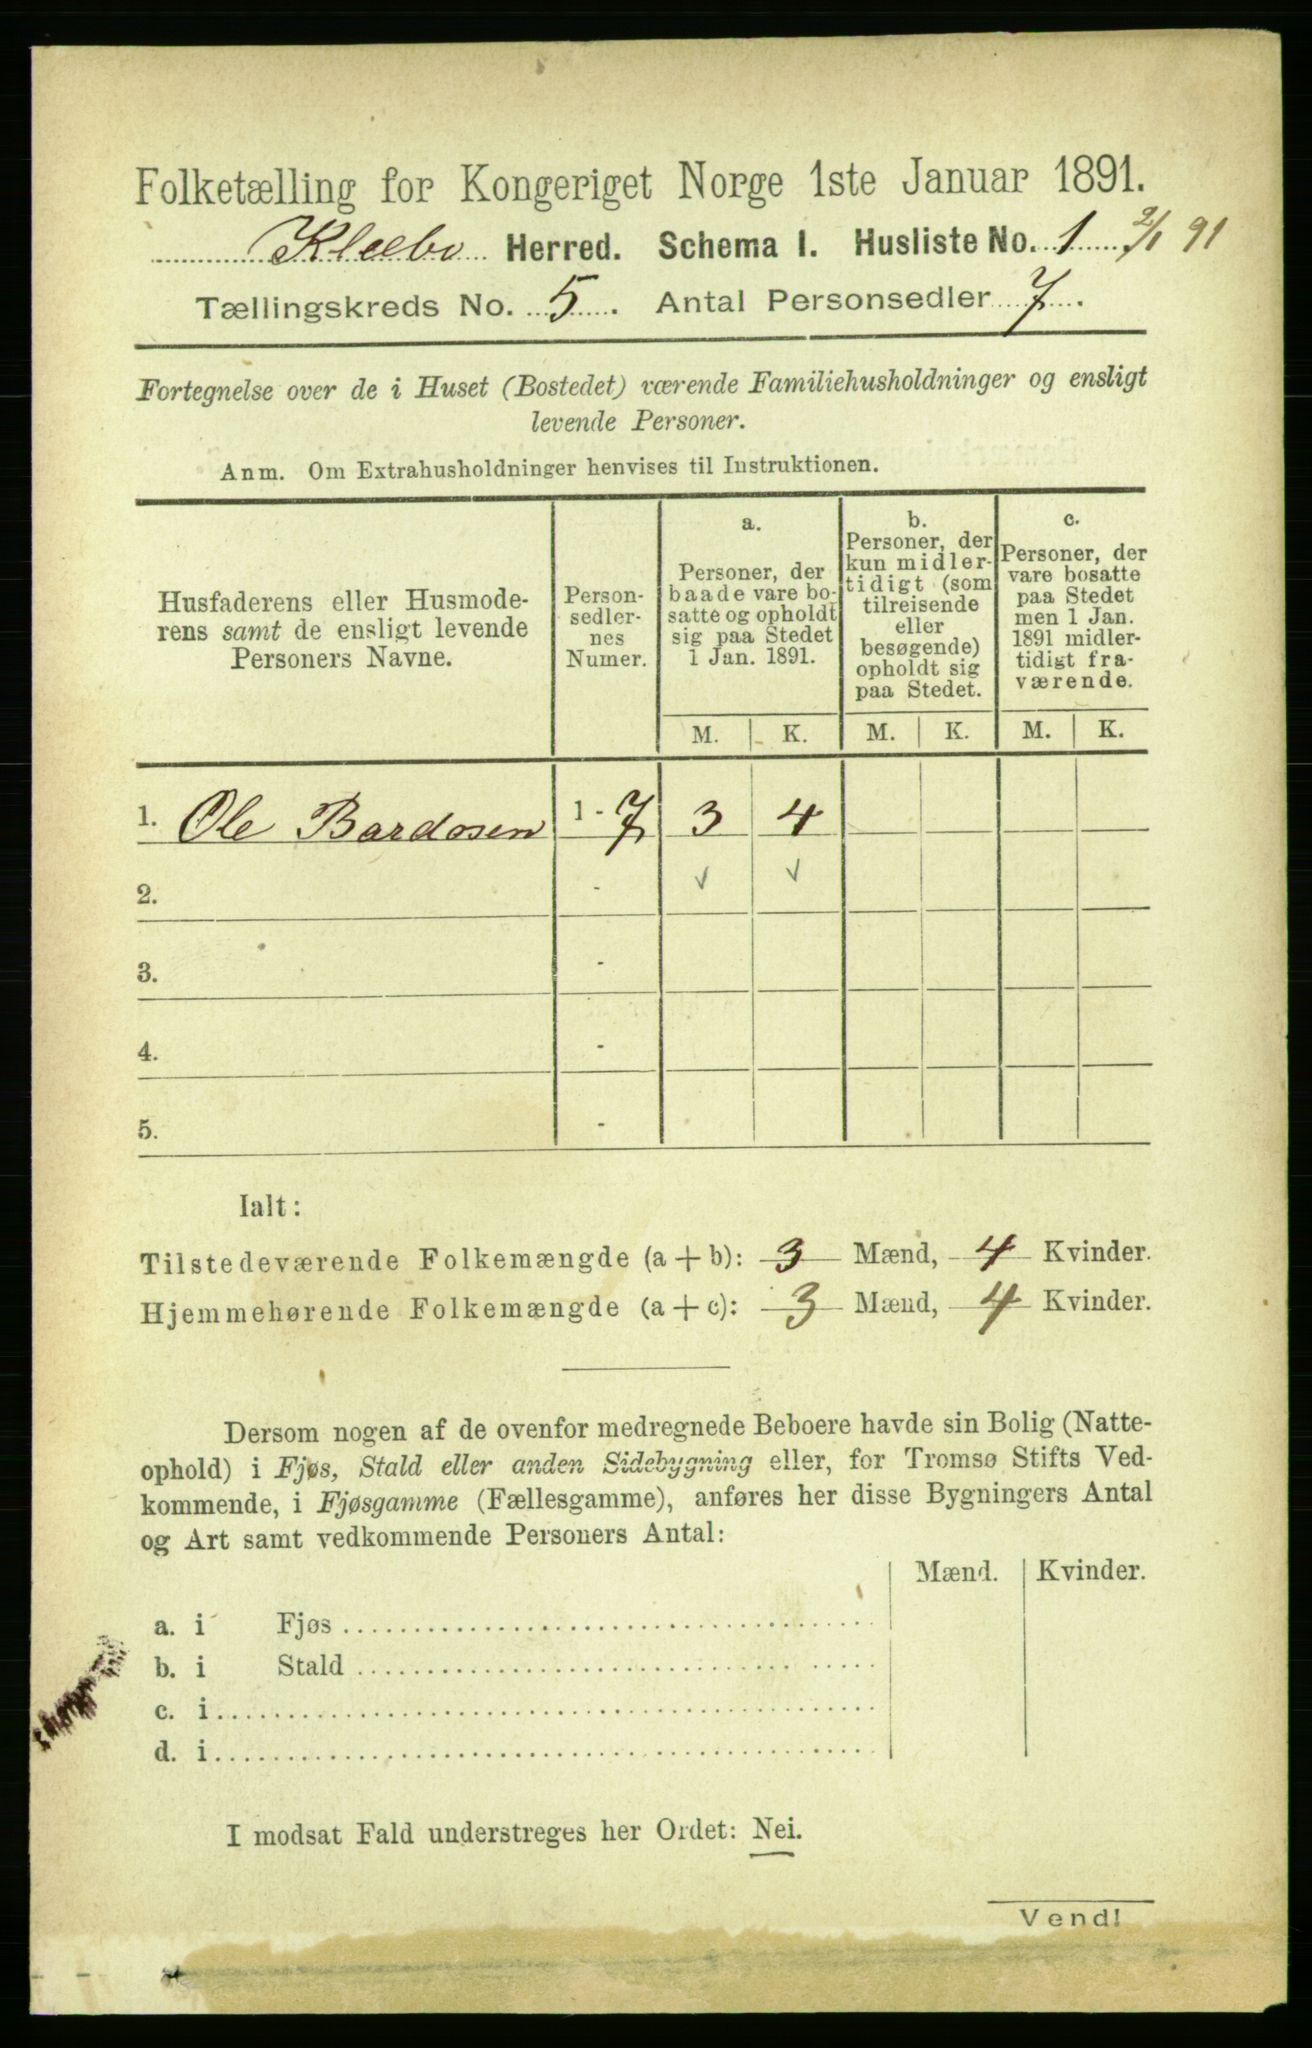 Folketælling for Kongeriget Norge 1ste Januar 1891.
Klæbo Herred. Schema I. Husliste No. 1 2/1 91
Tællingskreds No. 5. Antal Personsedler 7.
Fortegnelse over de i Huset (Bostedet) værende Familiehusholdninger og ensligt
levende Personer.
Anm. Om Extrahusholdninger henvises til Instruktionen.
Husfaderens eller Husmode-
rens samt de ensligt levende
Personers Navne.
Person-
sedler-
nes
Numer.
a.
Personer, der
baade vare bo-
satte og opholdt
sig paa Stedet
1 Jan. 1891.
b.
Personer, der
kun midler-
tidigt (som
tilreisende
eller
besøgende)
opholdt sig
paa Stedet.
c.
Personer, der
vare bosatte
paa Stedet
men 1 Jan.
1891 midler-
tidigt fra-
værende.
M. K. M. K. M. K.
1. Ole Bardosen 1 - 7 3 4
2. - ✓ ✓
3. -
4. -
5. -
Ialt:
Tilstedeværende Folkemængde (a + b): 3 Mænd, 4 Kvinder.
Hjemmehørende Folkemængde (a + c): 3 Mænd, 4 Kvinder.
Dersom nogen af de ovenfor medregnede Beboere havde sin Bolig (Natte-
ophold) i Fjøs, Stald eller anden Sidebygning eller, for Tromsø Stifts Ved-
kommende, i Fjøsgamme (Fællesgamme), anføres her disse Bygningers Antal
og Art samt vedkommende Personers Antal:
Mænd. Kvinder.
a. i Fjøs
b. i Stald
c. i
d. i
I modsat Fald understreges her Ordet: Nei.
Vend!